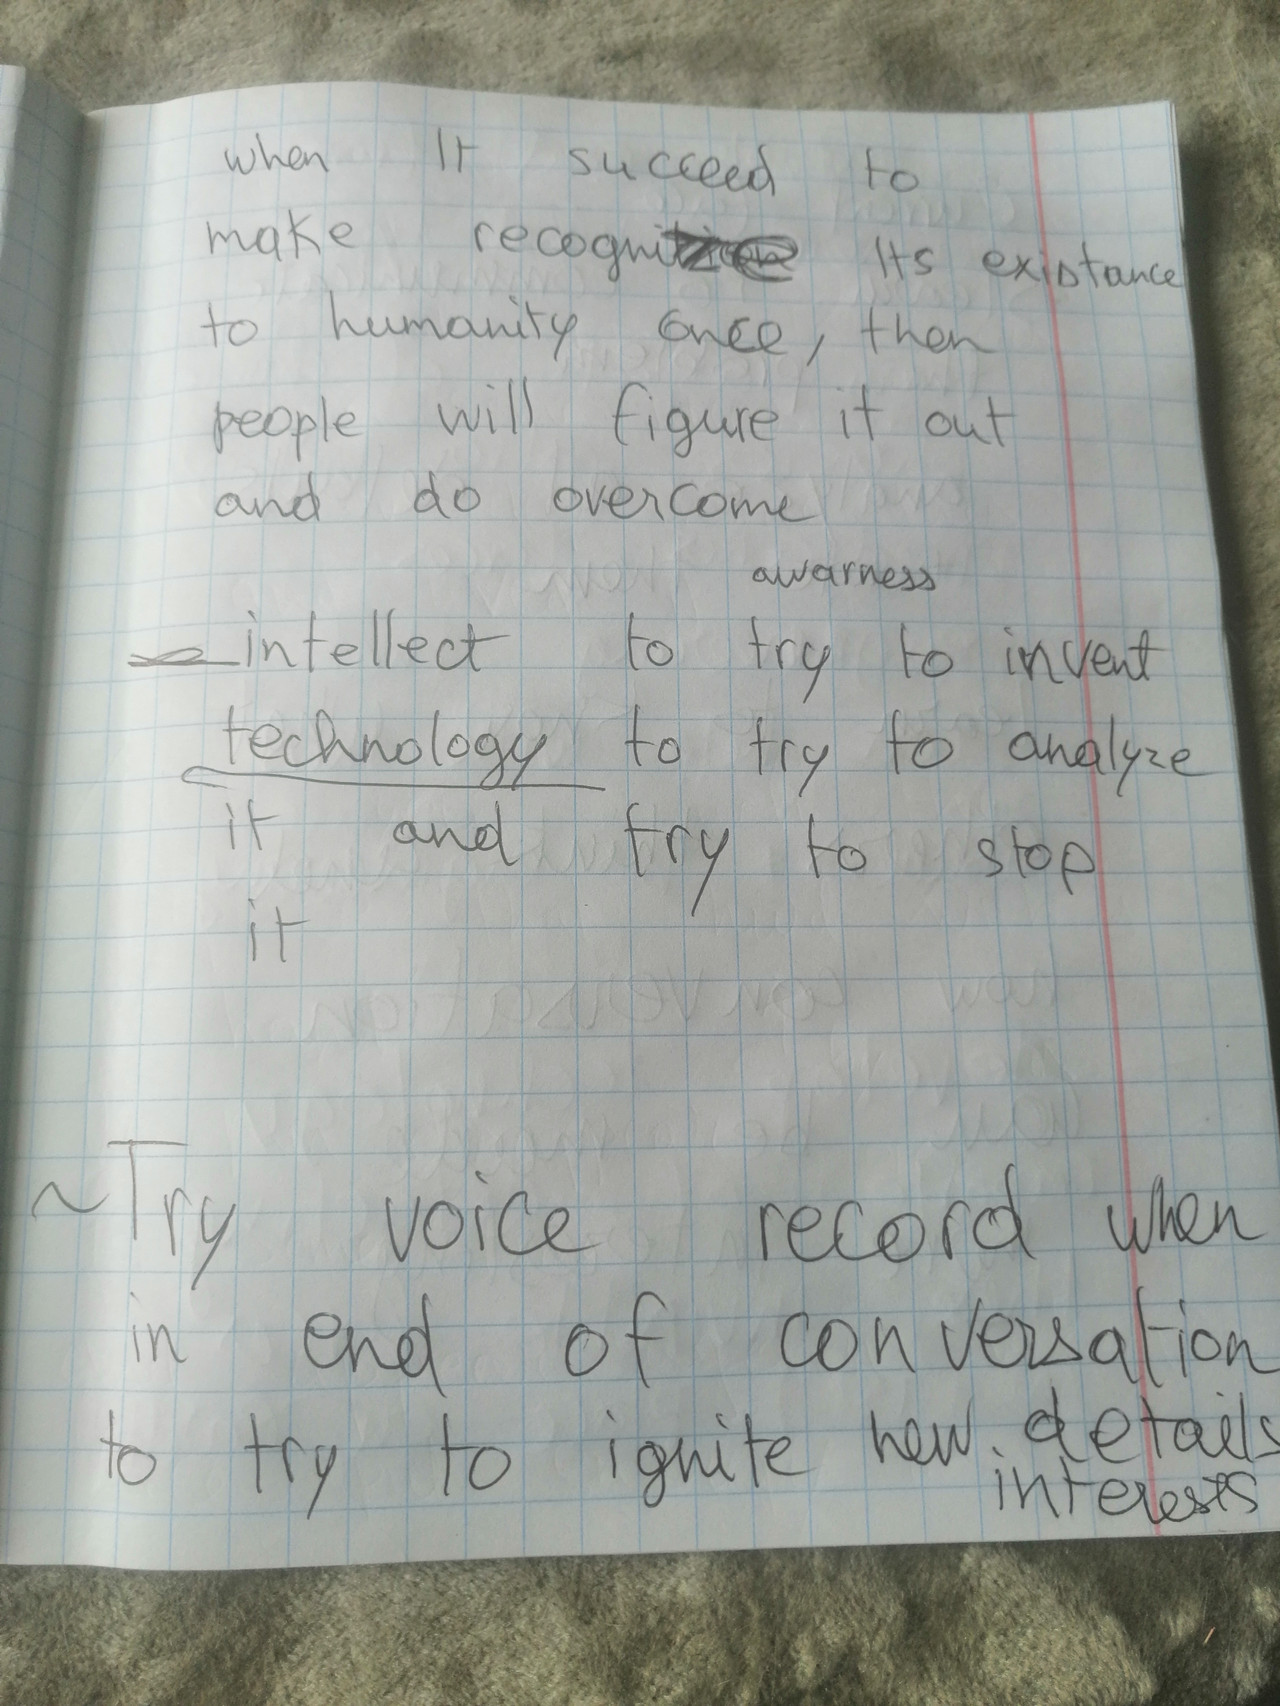 when It succeed to
make recognize Its existance
to humanity once, then
people will figure it out
and do overcome
awarness
intellect to try to invent
technology to try to analyze
it and try to stop
it
~Try voice record when
in end of conversation
to try to ignite new. details
interests